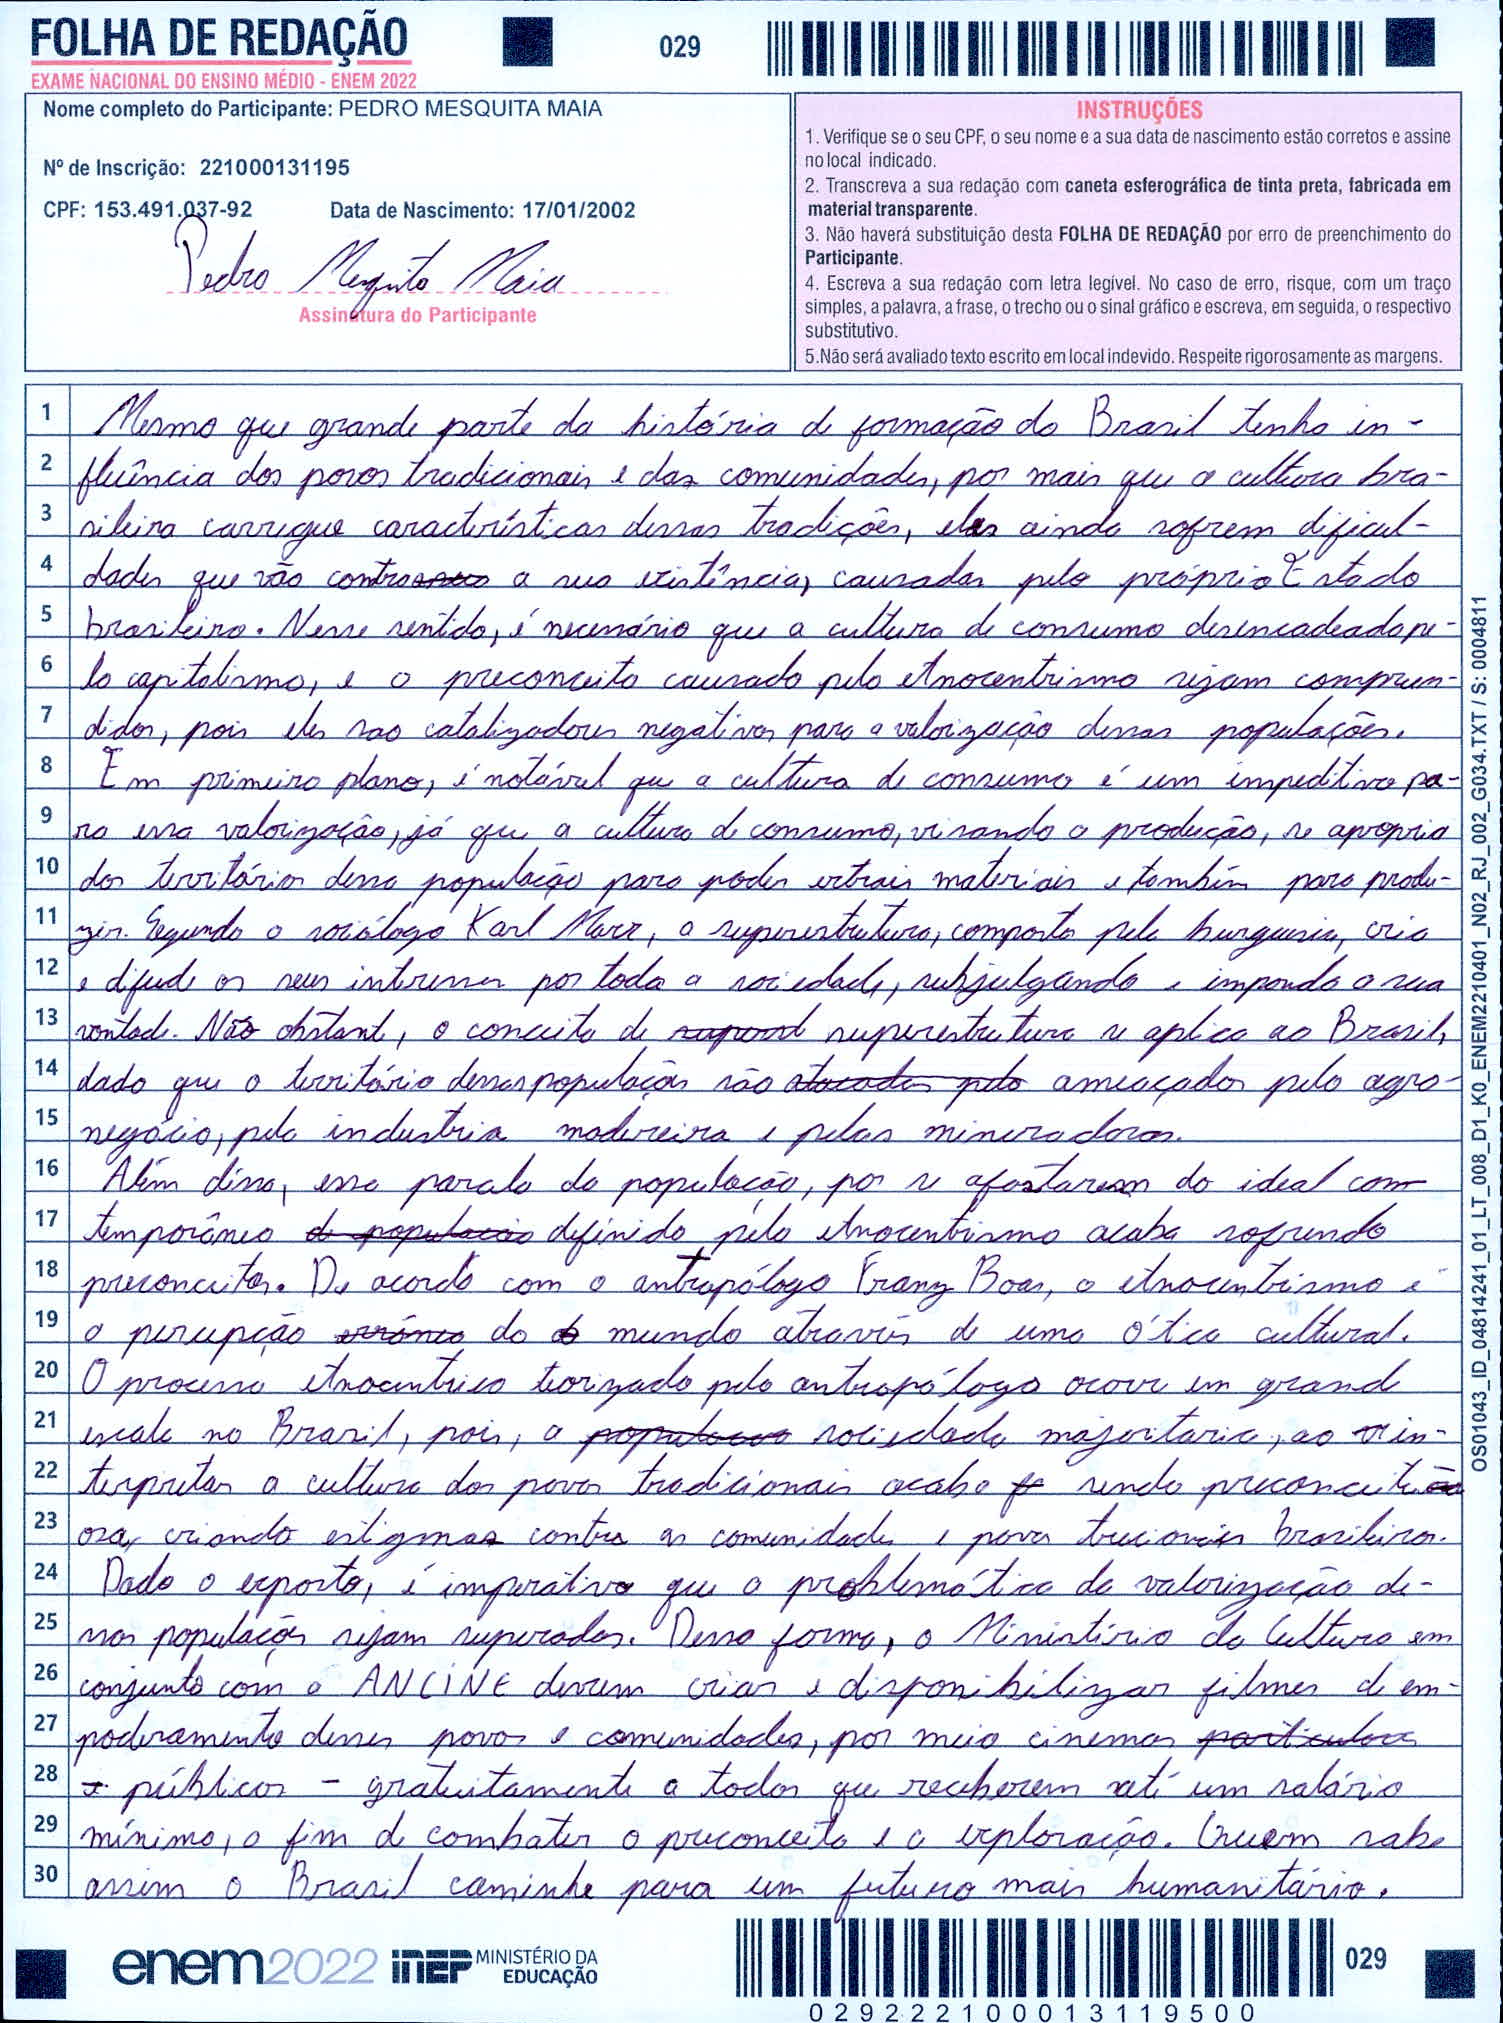 FOLHA DE REDAÇÃO
029
EXAME NACIONAL DO ENSINO MÉDIO - ENEM 2022
Nome completo do Participante: PEDRO MESQUITA MAIA
Nº de Inscrição: 221000131195
CPF: 153.491.037-92 Data de Nascimento: 17/01/2002
Pedro Mesquita Maia
Assinatura do Participante
INSTRUÇÕES
1. Verifique se o seu CPF, o seu nome e a sua data de nascimento estão corretos e assine
no local indicado.
2. Transcreva a sua redação com caneta esferográfica de tinta preta, fabricada em
material transparente.
3. Não haverá substituição desta FOLHA DE REDAÇÃO por erro de preenchimento do
Participante.
4. Escreva a sua redação com letra legível. No caso de erro, risque, com um traço
simples, a palavra, a frase, o trecho ou o sinal gráfico e escreva, em seguida, o respectivo
substitutivo.
5.Não será avaliado texto escrito em local indevido. Respeite rigorosamente as margens.
1 Mesmo que grande parte da história de formação do Brasil tenha in-
2 fluência dos povos tradicionais e das comunidades, por mais que a cultura bra-
3 sileira carregue características dessas tradições, elas ainda sofrem dificul-
4 dades que vão contra a sua existência, causadas pelo próprio Estado
5 brasileiro. Nesse sentido, é necessário que a cultura de consumo desencadeada pe-
6 lo capitalismo, e o preconceito causado pelo etnocentrismo sejam compreen-
7 didos, pois eles sao catalizadores negativos para a valorização dessas populações.
8 Em primeiro plano, é notável que a cultura de consumo é um impeditivo pa-
9 ra essa valorização, já que a cultura de consumo, visando a produção, se apropria
10 dos territórios dessa população para poder extrair materiais e também para produ-
11 zir. Segundo o sociólogo Karl Marx, a superestrutura, composta pela burguesia, cria
12 e difude os seus intresses por toda a sociedade, subjulgando e impondo a sua
13 vontade. Não obstante, o conceito de superestrutura se aplica ao Brasil,
14 dado que o território dessas populações são atacados pelo ameaçados pelo agro-
15 negócio, pela industria madereira e pelas mineradoras.
16 Além disso, essa parcela da população, por se afastarem do ideal con-
17 temporâneo de população definido pelo etnocentrismo acaba sofrendo
18 preconceitos. De acordo com o antropólogo Franz Boas, o etnocentrismo é
19 a percepção errônea do mundo através de uma ótica cultural.
20 O processo etnocentrico teorizado pelo antropólogo ocorre em grande
21 escala no Brasil, pois, a população sociedade majoritaria, ao in-
22 terpretar a cultura dos povos tradicionais acaba sendo preconceitu
23 osa, criando estigmas contra as comunidades e povos trucionais brasileiros.
24 Dado o exposto, é imperativo que a problemática da valorização de-
25 ssas populações sejam superadas. Dessa forma, o Ministério da Cultura em
26 conjunto com a ANCINE devem criar e disponibilizar filmes de em-
27 poderamento desses povos e comunidades, por meio cinemas particulares
28 públicos - gratuitamente a todos que receberem até um salário
29 mínimo, a fim de combater o preconceito e a exploração. Quem sabe
30 assim o Brasil caminhe para um futuro mais humanitário.
OS01043_ID_04814241_01_LT_008_D1_K0_ENEM2210401_N02_RJ_002_G034.TXT / S: 0004811
enem2022 inep MINISTÉRIO DA
EDUCAÇÃO
029
029222100013119500